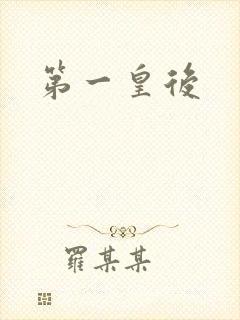 第一皇後
羅某某